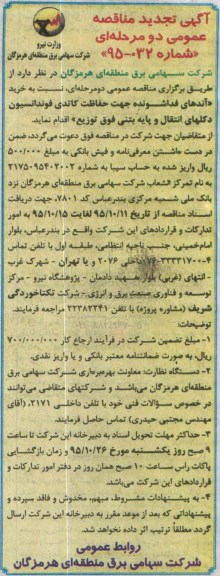 آگهی تجدید مناقصه
عمومی دو مرحله‌ای
«شماره ۰۳۲-۹۵»
وزارت نیرو
شرکت سهامی برق منطقه‌ای هرمزگان
شرکت سهامی برق منطقه‌ای هرمزگان در نظر دارد از
طریق برگزاری مناقصه عمومی دومرحله‌ای، نسبت به خرید
«آندهای فداشونده جهت حفاظت کاتدی فونداسیون
دکلهای انتقال و پایه بتنی فوق توزیع» اقدام نماید.
از متقاضیان جهت شرکت در مناقصه فوق دعوت می‌گردد، ضمن
در دست داشتن معرفی‌نامه و فیش بانکی به مبلغ ۵۰۰/۰۰۰
ریال واریز شده به حساب سیبا به شماره ۲۱۷۵۰۹۵۴۰۲۰۰۲
به نام تمرکز انشعاب شرکت سهامی برق منطقه‌ای هرمزگان نزد
بانک ملی شعبه مرکزی بندرعباس کد ۷۸۰۱، جهت دریافت
اسناد مناقصه از تاریخ ۹۵/۱۰/۱۱ لغایت ۹۵/۱۰/۱۵ به امور
تدارکات و قراردادهای این شرکت واقع در بندرعباس، بلوار
امام‌خمینی، جنب ناحیه انتظامی، طبقه اول با تلفن تماس
۳۳۳۳۱۷۰۰-۴-۰۷۶ داخلی ۲۰۷۶ و یا تهران - شهرک غرب
- انتهای (غربی) بلوار شهید دادمان - پژوهشگاه نیرو - مرکز
توسعه و فناوری صنعت برق و انرژی - شرکت تکتاخوردگی
شریف (مشاوره پروژه) با تلفن ۲۲۳۸۲۲۴۱ مراجعه فرمایند.
توضیحات:
۱- مبلغ تضمین شرکت در فرآیند ارجاع کار ۷۰۰/۰۰۰/۰۰۰
ریال، به صورت ضمانتنامه معتبر بانکی و یا واریز نقدی.
۲- دستگاه نظارت: معاونت بهره‌برداری شرکت سهامی برق
منطقه‌ای هرمزگان می‌باشد و شرکتهای متقاضی می‌توانند
در خصوص سؤالات فنی خود با تلفن داخلی ۲۱۷۱، (آقای
مهندس مجتبی حیدری) تماس حاصل فرمایند.
۳- حداکثر مهلت تحویل اسناد به دبیرخانه این شرکت تا ساعت
۹ صبح روز یکشنبه مورخ ۹۵/۱۰/۲۶ و زمان بازگشایی
پاکات راس ساعت ۱۰ صبح همان روز در دفتر امور تدارکات و
قراردادهای این شرکت می‌باشد.
۴- به پیشنهادات مشروط، مبهم، مخدوش و فاقد سپرده و
پیشنهاداتی که بعد از موعد مقرر به دبیرخانه این شرکت ارسال
گردد مطلقاً ترتیب اثر داده نخواهد شد.
روابط عمومی
شرکت سهامی برق منطقه‌ای هرمزگان